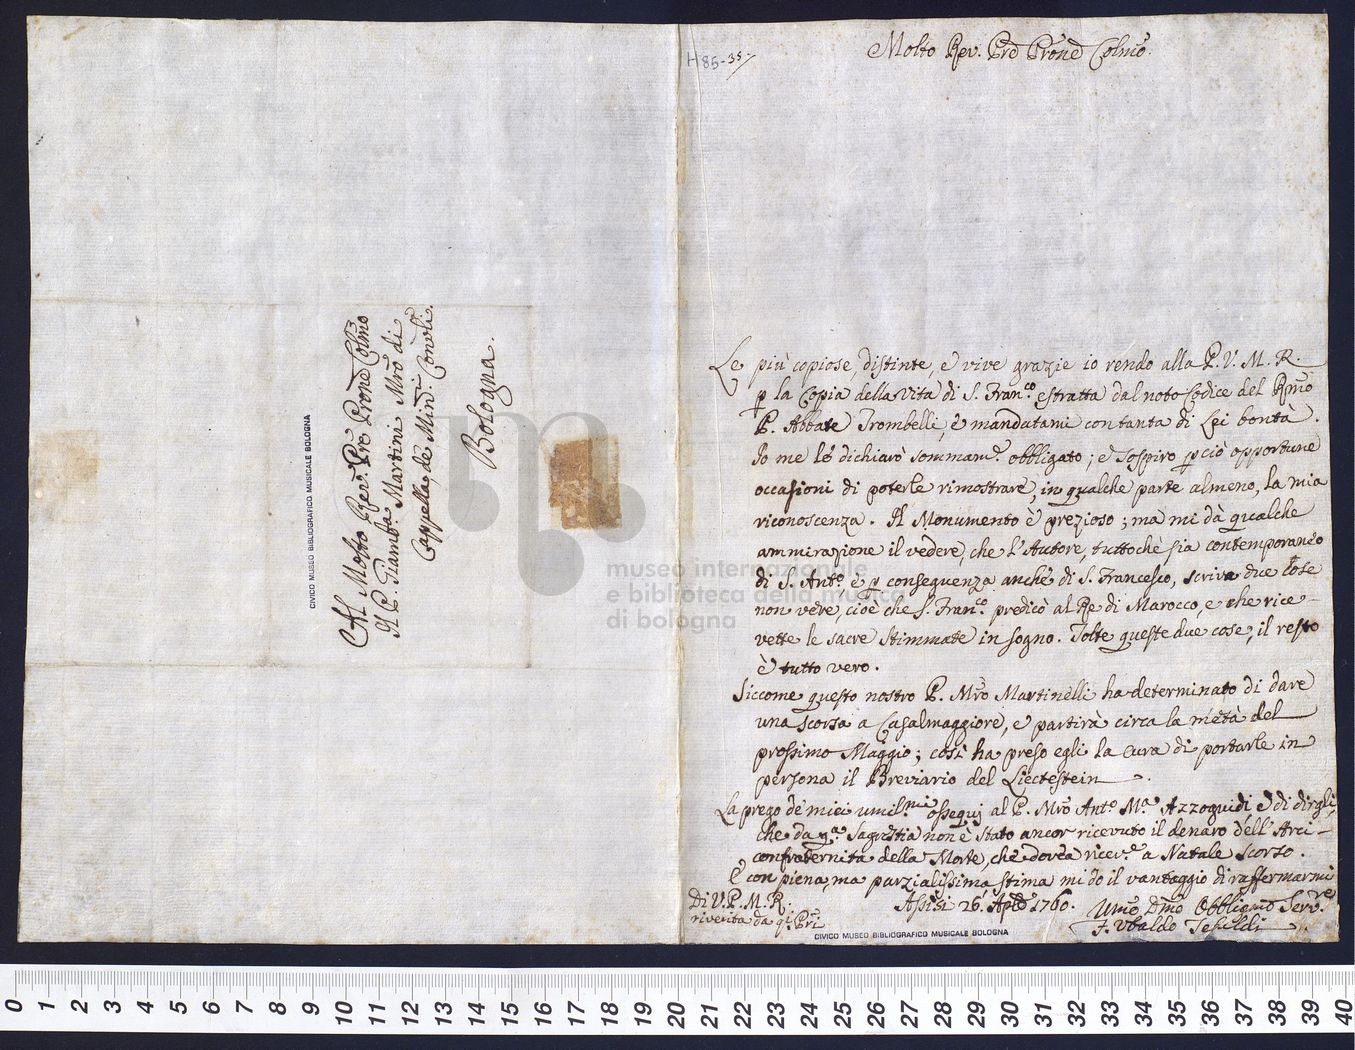 H 85-35
Molto Rev. Pre Prone Colmo.
Le più copiose, distinte, e vive grazie io rendo alla P. V. M. R.
p la Copia della Vita di S. Fran.co estratta dal noto Codice del Rmo
P. Abbate Trombelli, e mandatami con tanta di Lei bontà.
Io me le dichiarò sommam.e obbligato; e sospiro pciò opportune
occasioni di poterle rimostrare, in qualche parte almeno, la mia
riconoscenza. Il Monumento è prezioso; ma mi dà qualche
ammirazione il vedere, che l'Autore, tuttochè sia contemporaneo
di S. Ant.o e p conseguenza anche di S. Francesco, scriva due cose
non vere, cioè che S. Fran.co predicò al Re di Marocco, e che rice-
vette le sacre Stimmate in sogno. Tolte queste due cose, il resto
è tutto vero.
Siccome questo nostro P. Mro Martinelli ha determinato di dare
una scorsa a Casalmaggiore, e partirà circa la metà del
prossimo Maggio; così ha preso egli la cura di portarle in
persona il Breviario del Liectestein.
La prego de' miei umil.mi ossequj al P. Mro Ant.o M.a Azzoguidi e di dirgli,
che da q.a Sagrestia non è stato ancor ricevuto il denaro dell'Arci-
confraternita della Morte, che dovea ricev.e a Natale scorso.
E con piena, ma parzialissima stima mi do il vantaggio di raffermarmi
Di V. P. M. R.
riverita da qi. Pri
Assisi 26. Aple 1760.
Umo Dmo Obbligmo Serv.re
F. Ubaldo Tebaldi
Al Molto Rev. Pre Prone Colmo
Il P. Giamba Martini Mro di
Cappella, de Min.i Conv.li
Bologna.
CIVICO MUSEO BIBLIOGRAFICO MUSICALE BOLOGNA
CIVICO MUSEO BIBLIOGRAFICO MUSICALE BOLOGNA
museo internazionale
e biblioteca della musica
di bologna
0 1 2 3 4 5 6 7 8 9 10 11 12 13 14 15 16 17 18 19 20 21 22 23 24 25 26 27 28 29 30 31 32 33 34 35 36 37 38 39 40